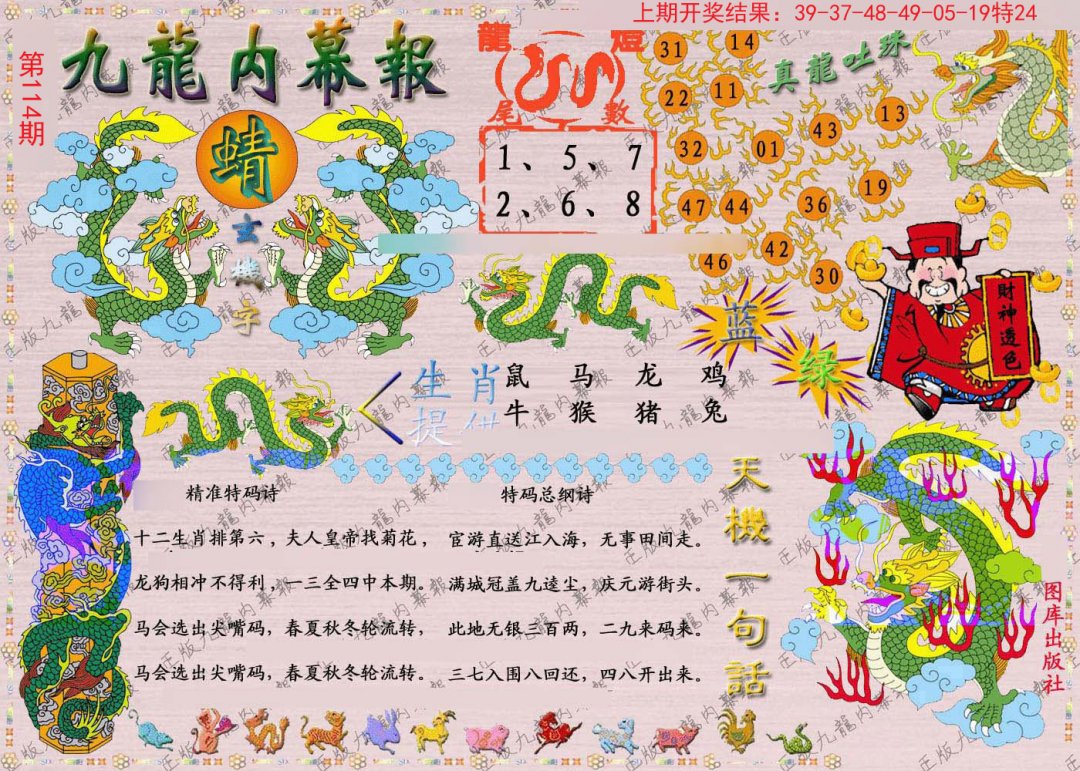 上期开奖结果：39-37-48-49-05-19特24
第114期
九龍内幕報
蜻
玄
機
字
龍
燈
尾
數
1、5、7
2、6、8
真龍吐珠
31
14
22
11
13
43
32
01
47
44
36
19
42
46
30
財神透色
蓝
绿
生肖
提供
鼠 马 龙 鸡
牛 猴 猪 兔
精准特码诗
十二生肖排第六，夫人皇帝找菊花，
龙狗相冲不得利，一三全四中本期。
马会选出尖嘴码，春夏秋冬轮流转，
马会选出尖嘴码，春夏秋冬轮流转。
特码总纲诗
宦游直送江入海，无事田间走。
满城冠盖九逵尘，庆元游街头。
此地无银三百两，二九来码来。
三七入围八回还，四八开出来。
天機一句話
图库出版社
正版九龍内幕報